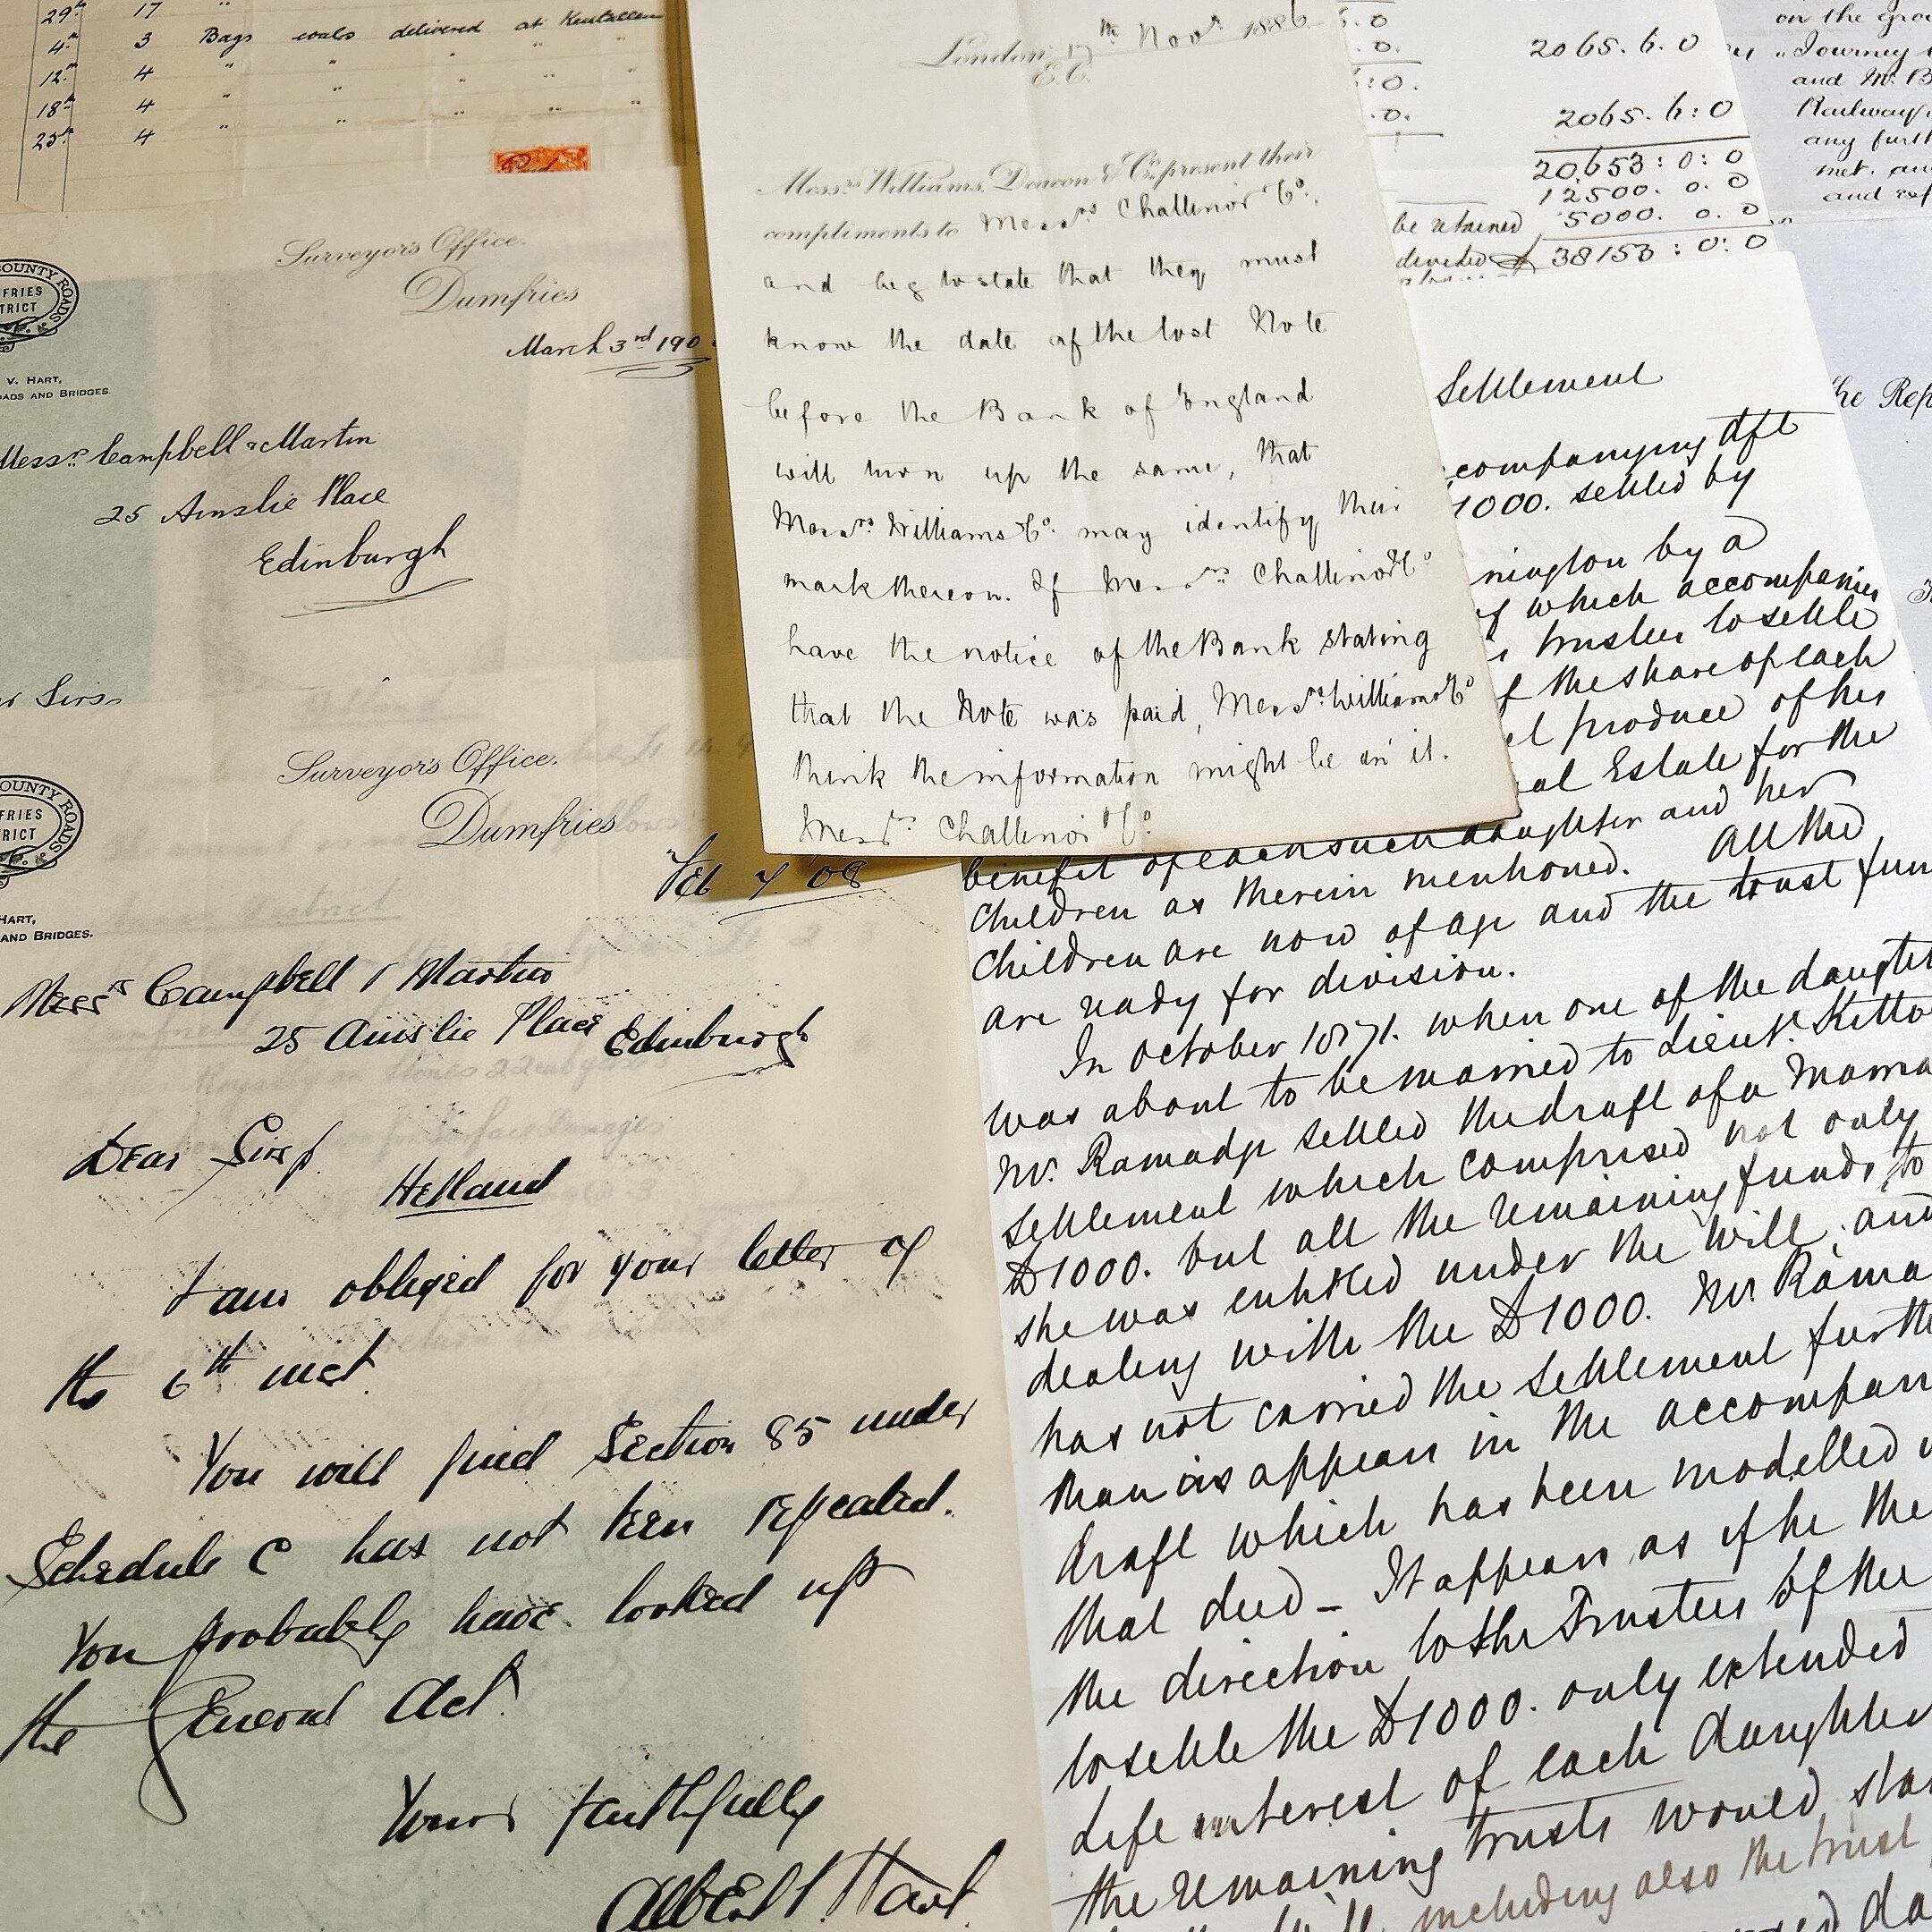 29th 17 "
4th 3 Bags coals delivered at Kentallen
12th 4 " " " "
18th 4 " " " "
25th 4 " " " "
Surveyor's Office.
Dumfries
March 3rd 190
COUNTY ROADS
FRIES
TRICT
V. HART,
ADS AND BRIDGES.
Messrs. Campbell & Martin
25 Ainslie Place
Edinburgh
Sirs
Surveyor's Office.
Dumfries
Feb 7. 08
COUNTY ROADS
FRIES
RICT
HART,
AND BRIDGES.
Messrs Campbell & Martin
25 Ainslie Place Edinburgh
Dear Sirs
Helland
I am obliged for your letter of
the 6th inst.
You will find Section 85 under
Schedule C has not been repealed.
You probably have looked up
the General Act.
Yours faithfully
Albert Hart.
London, 17th Novr. 1886
E.C.
Messrs. Williams, Deacon & Co. present their
compliments to Messrs Challinor & Co.,
and beg to state that they must
know the date of the lost Note
before the Bank of England
will turn up the same, that
Messrs Williams & Co. may identify their
mark thereon. If Messrs Challinor & Co
have the notice of the Bank stating
that the Note was paid, Messrs. Williams & Co
think the information might be in it.
Messrs. Challinor & Co.
2065. 6. 0
2065. 6: 0
20,653: 0: 0
12500. 0. 0
be retained 5000. 0. 0
divided 38153: 0: 0
on the
Journey
and Mr. B
Railway,
any furth
met. an
and exp
the Rep
Settlement
companying dft
1000. settled by
nington by a
of which accompanies
trustees to settle
f the share of each
produce of his
al Estate for the
benefit of each such daughter and her
children as therein mentioned. All the
children are now of age and the trust fun
are ready for division.
In October 1871. when one of the daught
was about to be married to Lieut. Kitto
Mr. Ramadge settled the draft of a Marria
settlement which comprised not only
£1000. but all the remaining funds to
she was entitled under the Will, and
dealing with the £1000. Mr. Rama
has not carried the settlement furthe
than as appears in the accompan
draft which has been modelled
that deed - It appears as if he the
the direction to the Trustees of the
to settle the £1000. only extended
Life interest of each daughter
the remaining trusts would sta
including also the trust